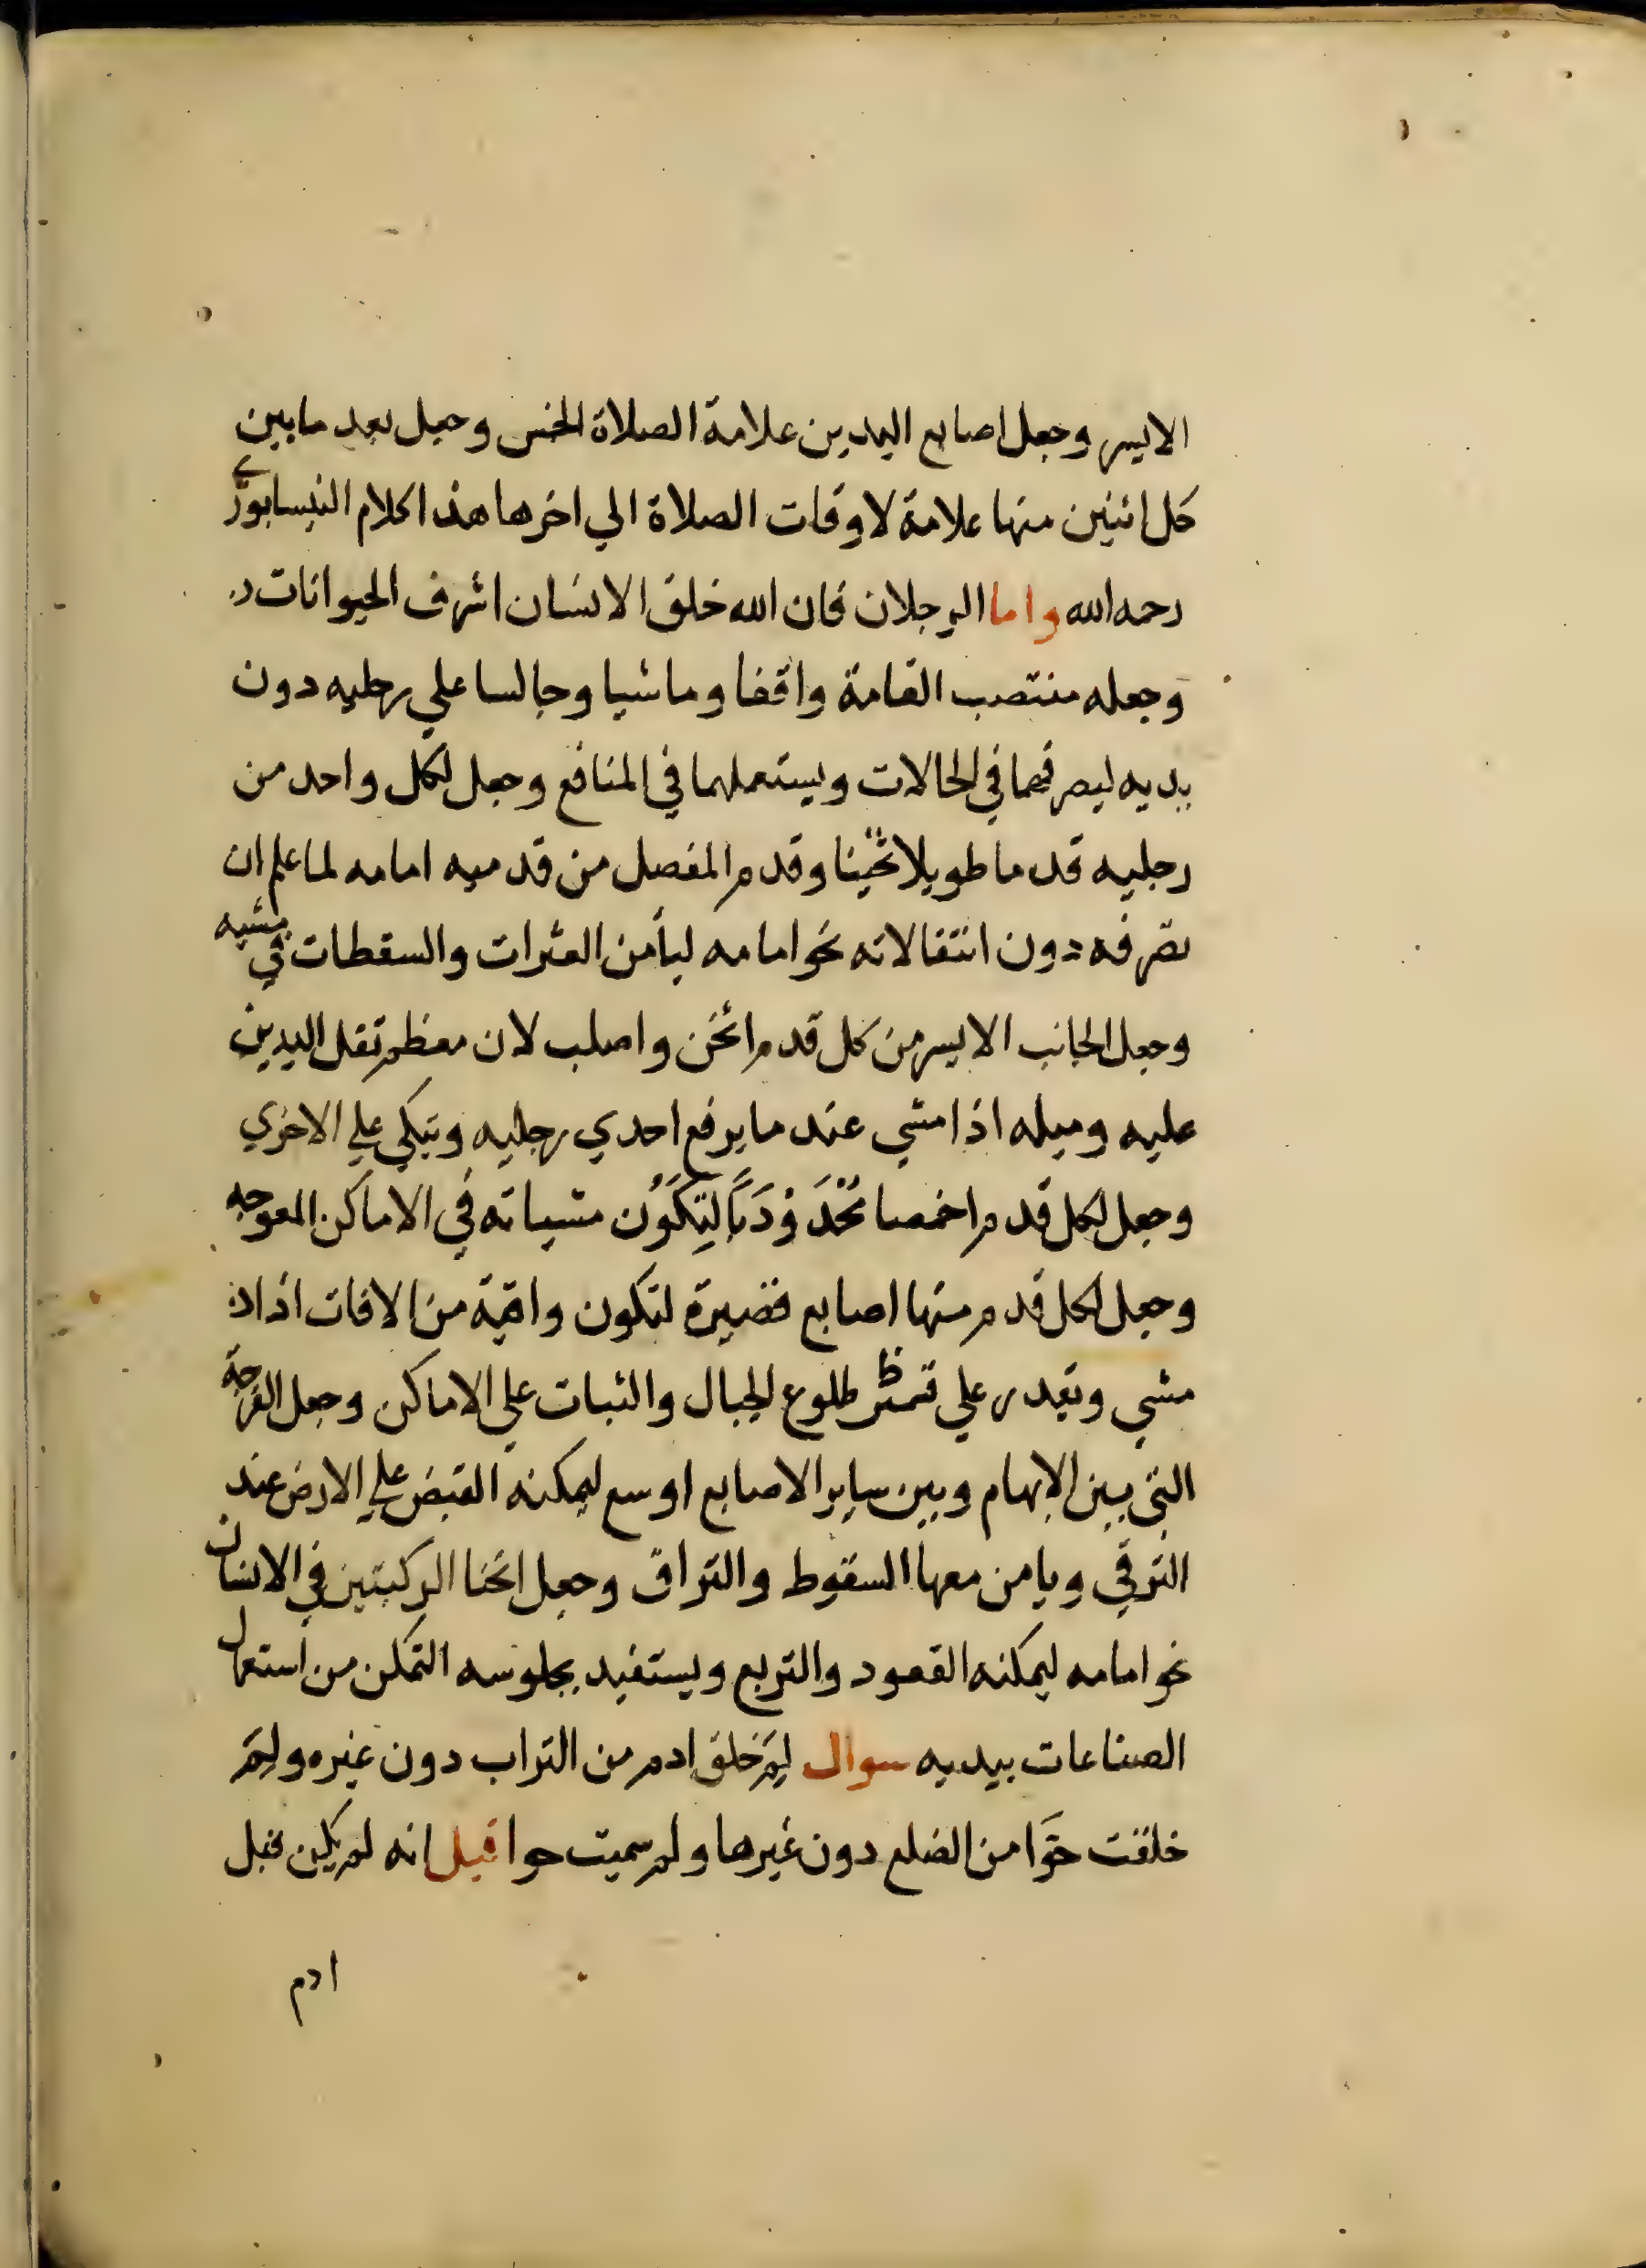 الايسر وجعل اصابع اليدين علامة الصلاة الخمس وجعل بعد ما بين
كل اثنين منها علامة لاوقات الصلاة الي اخرها هذا كلام النيسابوري
رحمه الله واما الرجلان فان الله خلق الانسان اشرف الحيوانات
وجعله منتصب القامة واقفا وماشيا وجالسا علي رجليه دون
يديه ليصرفهما في الحالات ويستعملهما في المنافع وجعل لكل واحد من
رجليه قدما طويلا ثخينا وقدم المفصل من قدميه امامه لما علم ان
تصرفه دون انتقالاته نحو امامه ليأمن العثرات والسقطات في مشيه
وجعل الجانب الايسر من كل قدم اثخن واصلب لان معظم ثقل اليدين
عليه وميله اذا مشي عند ما يرفع احدي رجليه ويتكي علي الاخري
وجعل لكل قدم اخمصا لتكون مشياته في الاماكن المعوجه
وجعل لكل قدم منها اصابع قصيرة لتكون واقية من الافات اذا
مشي ويقدر علي طلوع الجبال والثبات علي الاماكن وجعل الفرجة
التي بين الابهام وبين ساير الاصابع اوسع ليمكنه القبض علي الارض عند
الترقي ويامن معها السقوط والتراق وجعل انحنا الركبتين في الانسان
نحو امامه ليمكنه القعود والتربع ويستفيد بجلوسه التمكن من استعمال
الصناعات بيديه سوال لم خلق ادم من التراب دون غيره ولم
خلقت حوا من الضلع دون غيرها ولم سميت حوا قيل انه لم يكن قبل
ادم